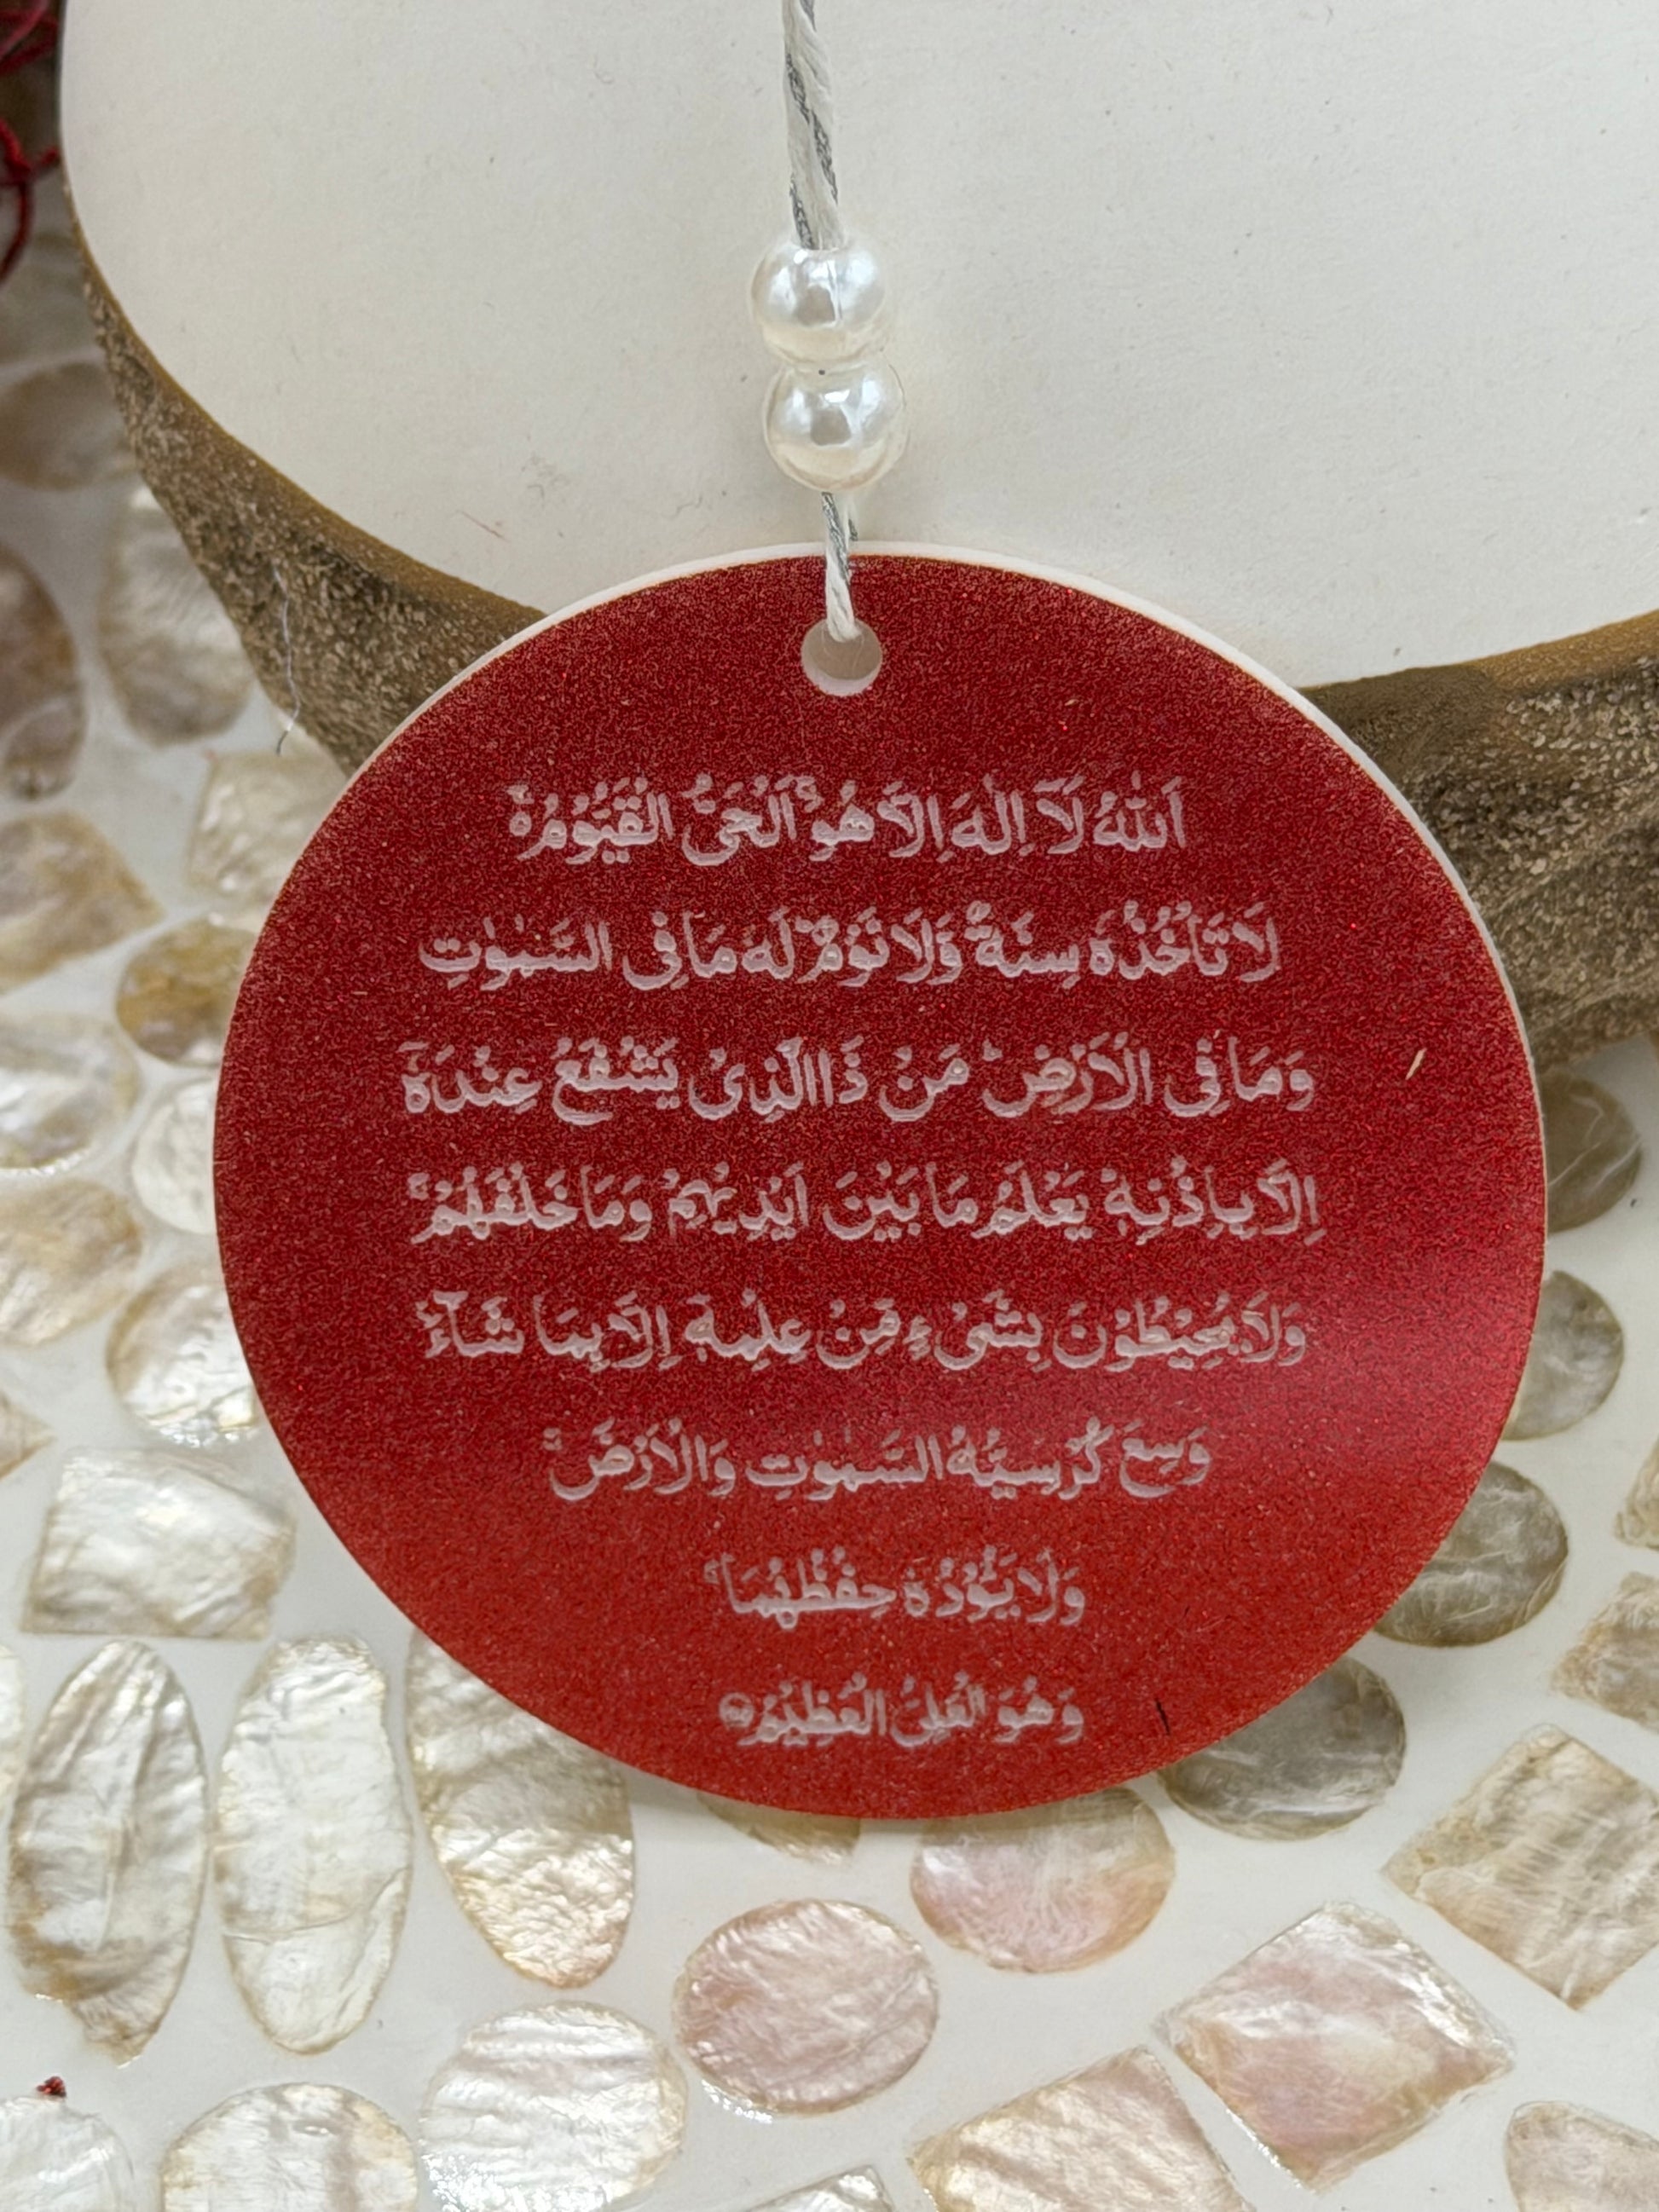 اَللّٰهُ لَآ اِلٰهَ اِلَّا هُوَۚ اَلْحَيُّ الْقَيُّوْمُ ەۚ
لَا تَأْخُذُهٗ سِنَةٌ وَّلَا نَوْمٌؕ لَهٗ مَا فِى السَّمٰوٰتِ
وَمَا فِى الْاَرْضِؕ مَنْ ذَا الَّذِىْ يَشْفَعُ عِنْدَهٗٓ
اِلَّا بِاِذْنِهٖؕ يَعْلَمُ مَا بَيْنَ اَيْدِيْهِمْ وَمَا خَلْفَهُمْۚ
وَلَا يُحِيْطُوْنَ بِشَىْءٍ مِّنْ عِلْمِهٖٓ اِلَّا بِمَا شَآءَۚ
وَسِعَ كُرْسِيُّهُ السَّمٰوٰتِ وَالْاَرْضَۚ
وَلَا يَـُٔوْدُهٗ حِفْظُهُمَاۚ
وَهُوَ الْعَلِىُّ الْعَظِيْمُ